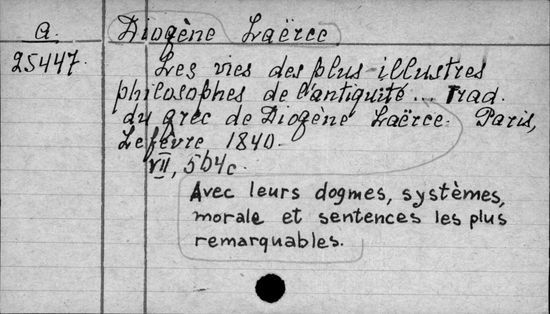 A. Diogène Laërce.
25447. Les vies des plus illustres
philosophes de l'antiquité... Trad.
du grec de Diogène Laërce. Paris,
Lefèvre, 1840.
VII, 504c.
Avec leurs dogmes, systèmes,
morale et sentences les plus
remarquables.